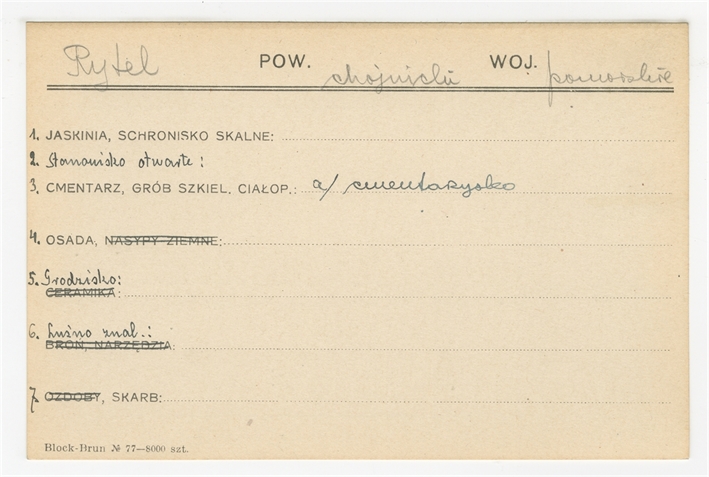 Rytel POW. chojnicki WOJ. pomorskie
1. JASKINIA, SCHRONISKO SKALNE:
2. Stanowisko otwarte:
3. CMENTARZ, GRÓB SZKIEL. CIAŁOP.: a/ cmentarzysko
4. OSADA, NASYPY ZIEMNE:
5. Grodzisko:
CERAMIKA:
6. Luźno znal.:
BROŃ, NARZĘDZIA:
7. OZDOBY, SKARB:
Block-Brun № 77—8000 szt.